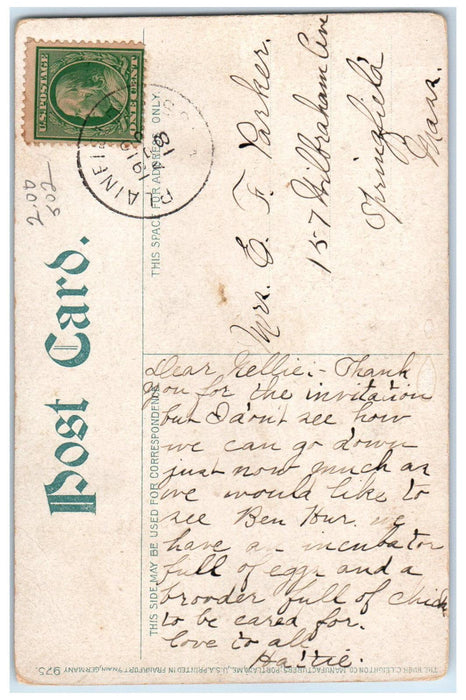 U.S. POSTAGE
ONE CENT
1910
2.00
502
Post Card.
THIS SPACE FOR ADDRESS ONLY.
THIS SIDE MAY BE USED FOR CORRESPONDENCE
Mrs. E. F. Parker.
157 Wilbraham Ave
Springfield
Mass.
Dear Nellie:- Thank
you for the invitation
but I don't see how
we can go down
just now much as
we would like to
see Ben Hur. we
have an incubator
full of eggs and a
brooder full of chicks
to be cared for.
love to all
Hattie.
975. THE HUGH C. LEIGHTON CO. MANUFACTURERS, PORTLAND, ME., U.S.A. PRINTED IN FRANKFORT o/MAIN, GERMANY